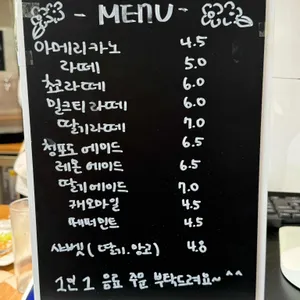 - MENU -
아메리카노 4.5
라떼 5.0
초코라떼 6.0
밀크티라떼 6.0
딸기라떼 7.0
청포도 에이드 6.5
레몬 에이드 6.5
딸기에이드 7.0
캐모마일 4.5
페퍼민트 4.5
샤벳 (딸기. 망고) 4.8
1인 1 음료 주문 부탁드려요~^^